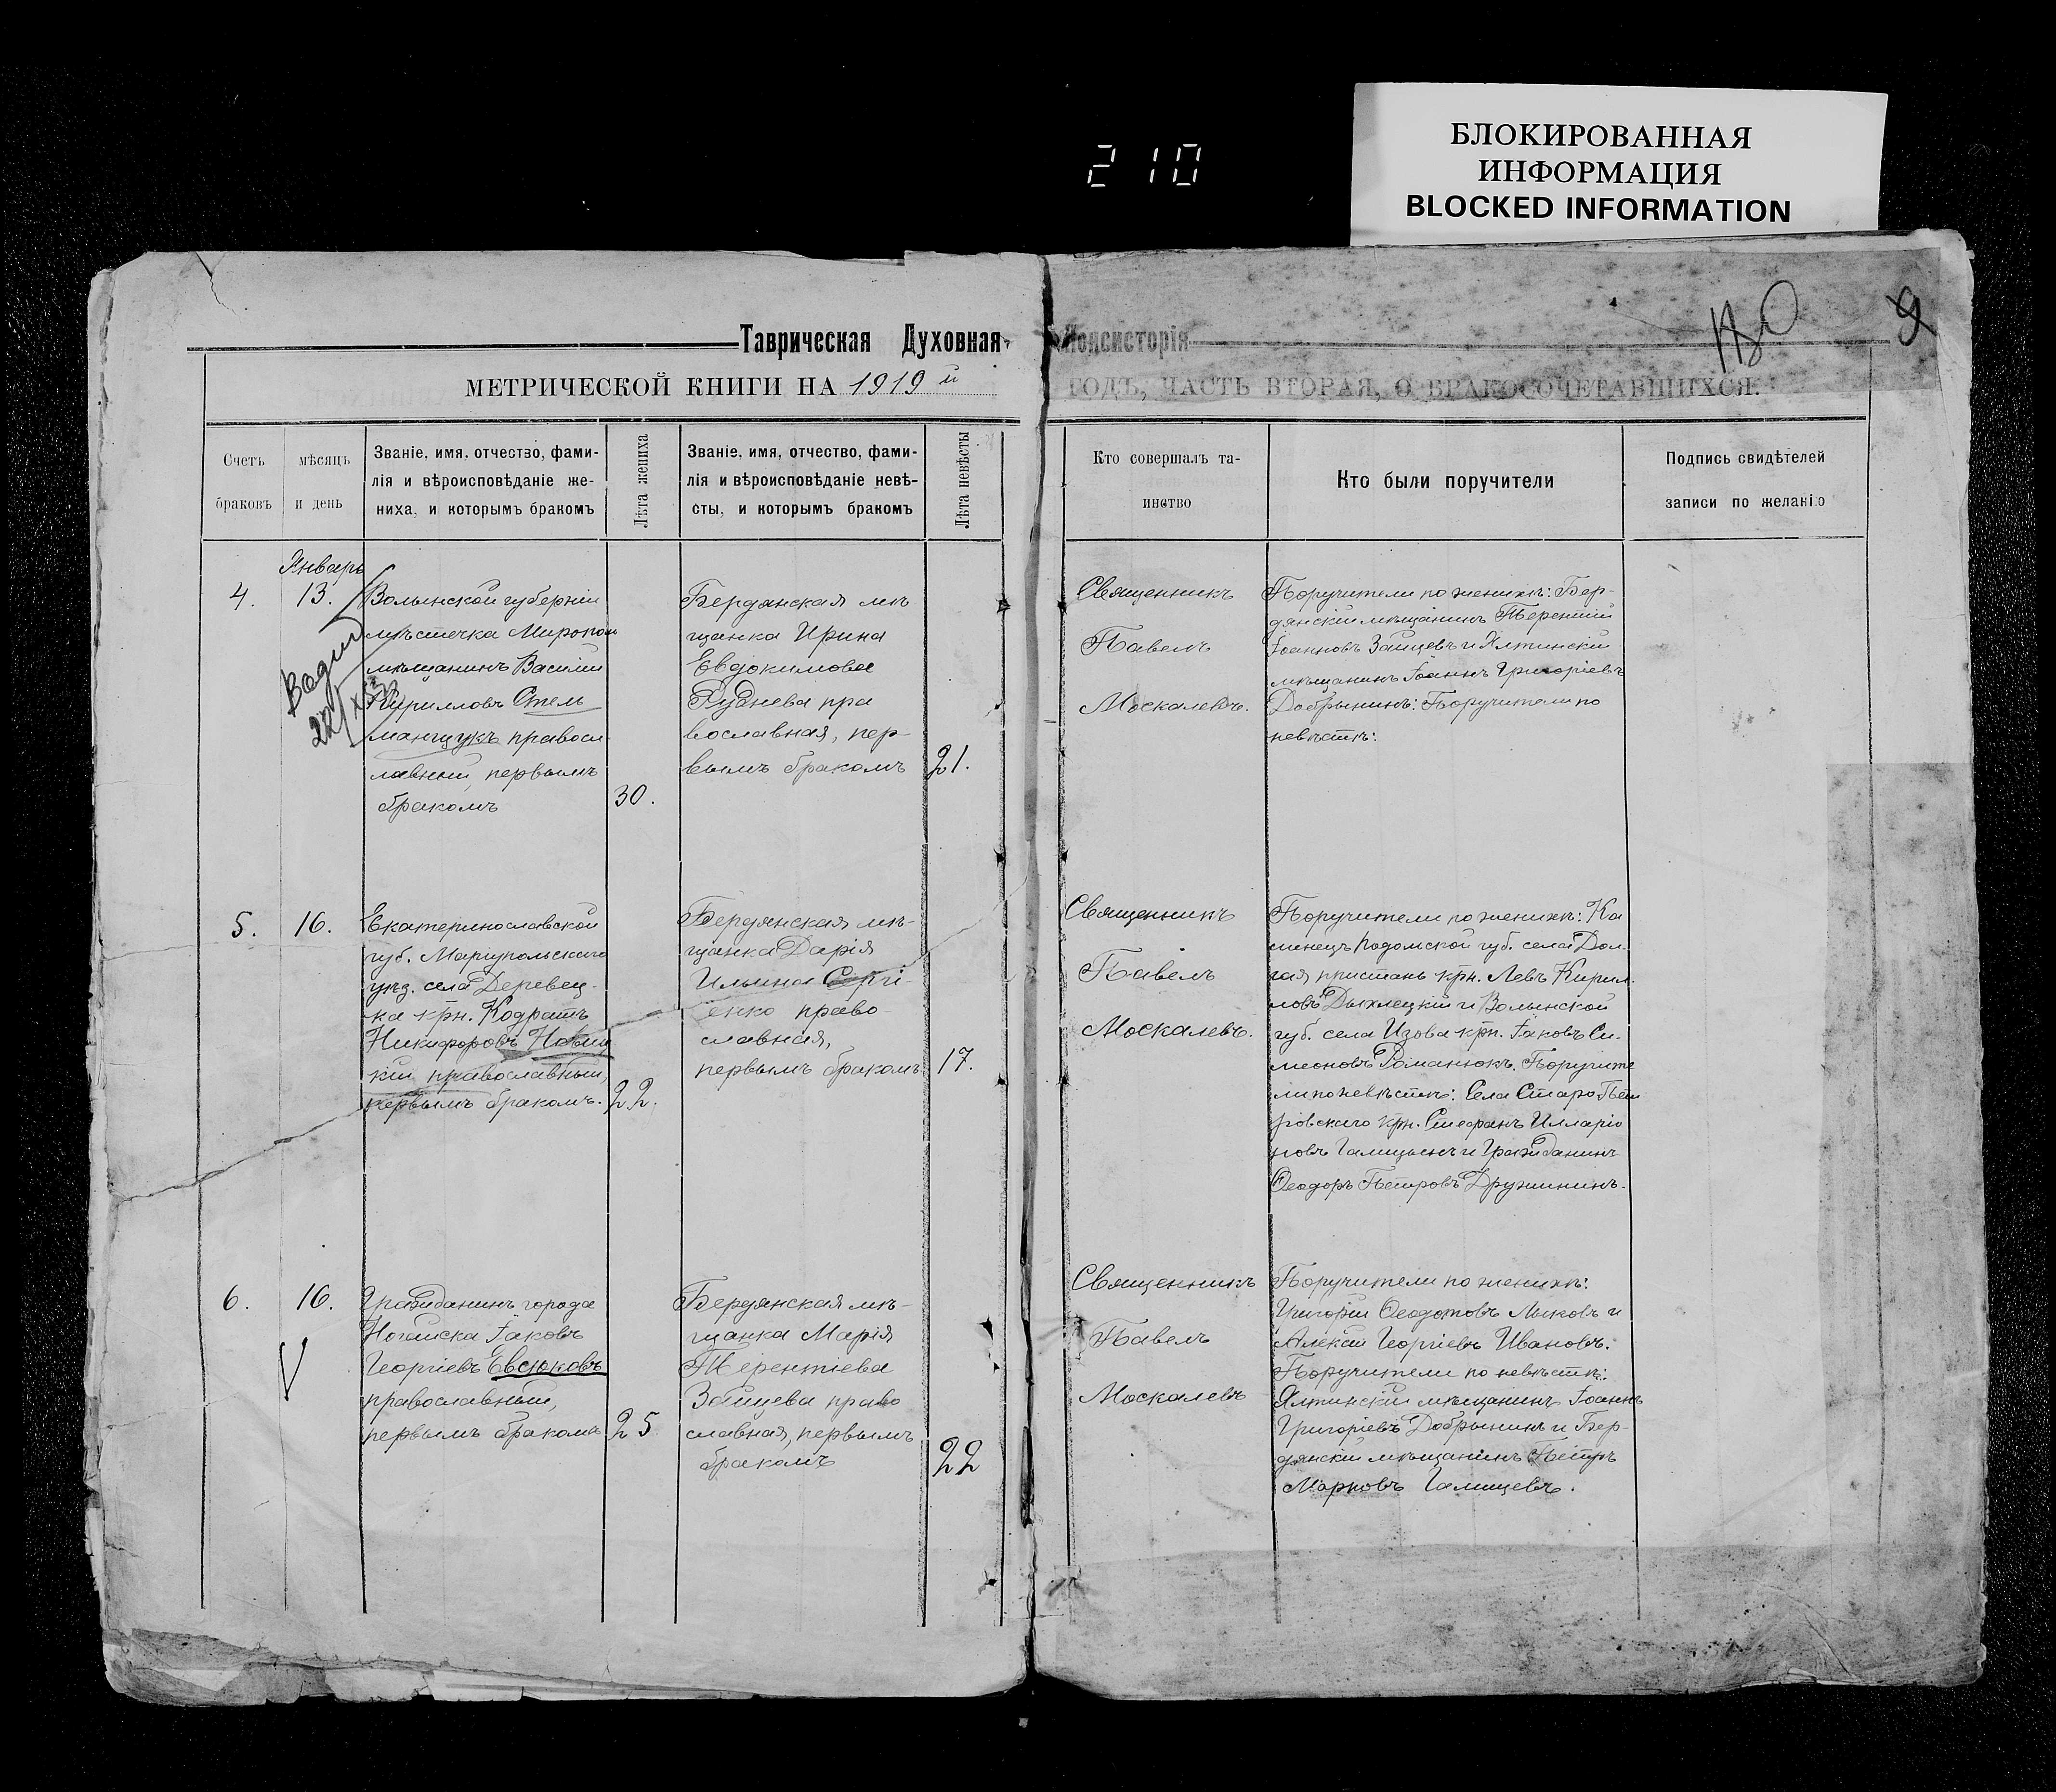 БЛОКИРОВАННАЯ
ИНФОРМАЦИЯ
BLOCKED INFORMATION
210
9
Таврическая Духовная Консисторія
МЕТРИЧЕСКОЙ КНИГИ НА 1919 й ГОДЪ, ЧАСТЬ ВТОРАЯ, О БРАКОСОЧЕТАВШИХСЯ.
Счетъ
браковъ
мѣсяцъ
и день
Званіе, имя, отчество, фами-
лія и вѣроисповѣданіе же-
ниха, и которымъ бракомъ
Лѣта жениха
Званіе, имя, отчество, фами-
лія и вѣроисповѣданіе невѣ-
сты, и которымъ бракомъ
Лѣта невѣсты
Кто совершалъ та-
инство
Кто были поручители
Подпись свидѣтелей
записи по желанію
4.
Январь
13.
Волынской губерніи
мѣстечка Мирополь
мѣщанинъ Василій
Кирилловъ Стель
мащукъ правосл
лавный, первымъ
бракомъ
30.
Бердянская мѣ
щанка Ирина
Евдокимова
Руднева пра
вославная, пер-
вымъ бракомъ
21.
Священникъ
Павелъ
Москалевъ.
Поручители по женихѣ: Бер-
дянскій мѣщанинъ Терентій
Іоанновъ Зайцевъ и Ялтинскій
мѣщанинъ Іоаннъ Григоріевъ
Добрынинъ: Поручители по
невѣстѣ:
5.
16.
Екатеринославской
губ. Маріупольскаго
уѣз. села Деревец-
ка крн. Кодратъ
Никифоровъ Новиц
кій православный,
первымъ бракомъ.
22.
Бердянская мѣ-
щанка Дарія
Ильина Сергі-
енко право
славная,
первымъ бракомъ
17.
Священникъ
Павелъ
Москалевъ.
Поручители по женихѣ: Ка
менецъ Подомской губ. села Дол-
гая пристань крн. Левъ Кирил-
ловъ Дыхлецкій и Волынской
губ. села Изова крн. Іаковъ Си-
меоновъ Романюкъ. Поручите
ли по невѣстѣ: Села Старо-Пет
ровскаго крн. Стефанъ Илларіо
новъ Галицынъ и Гражданинъ
Ѳеодоръ Петровъ Дружининъ.
6.
16.
Гражданинъ города
Ногайска Іаковъ
Георгіевъ Евсюковъ
православный,
первымъ бракомъ
25
Бердянская мѣ-
щанка Марія
Терентіева
Зайцева право
славная, первымъ
бракомъ
22
Священникъ
Павелъ
Москалевъ
Поручители по женихѣ:
Григорій Ѳеодотовъ Лыковъ и
Алексій Георгіевъ Ивановъ.
Поручители по невѣстѣ:
Ялтинскій мѣщанинъ Іоаннъ
Григоріевъ Добрынинъ и Бер-
дянскій мѣщанинъ Петръ
Марковъ Галицевъ.